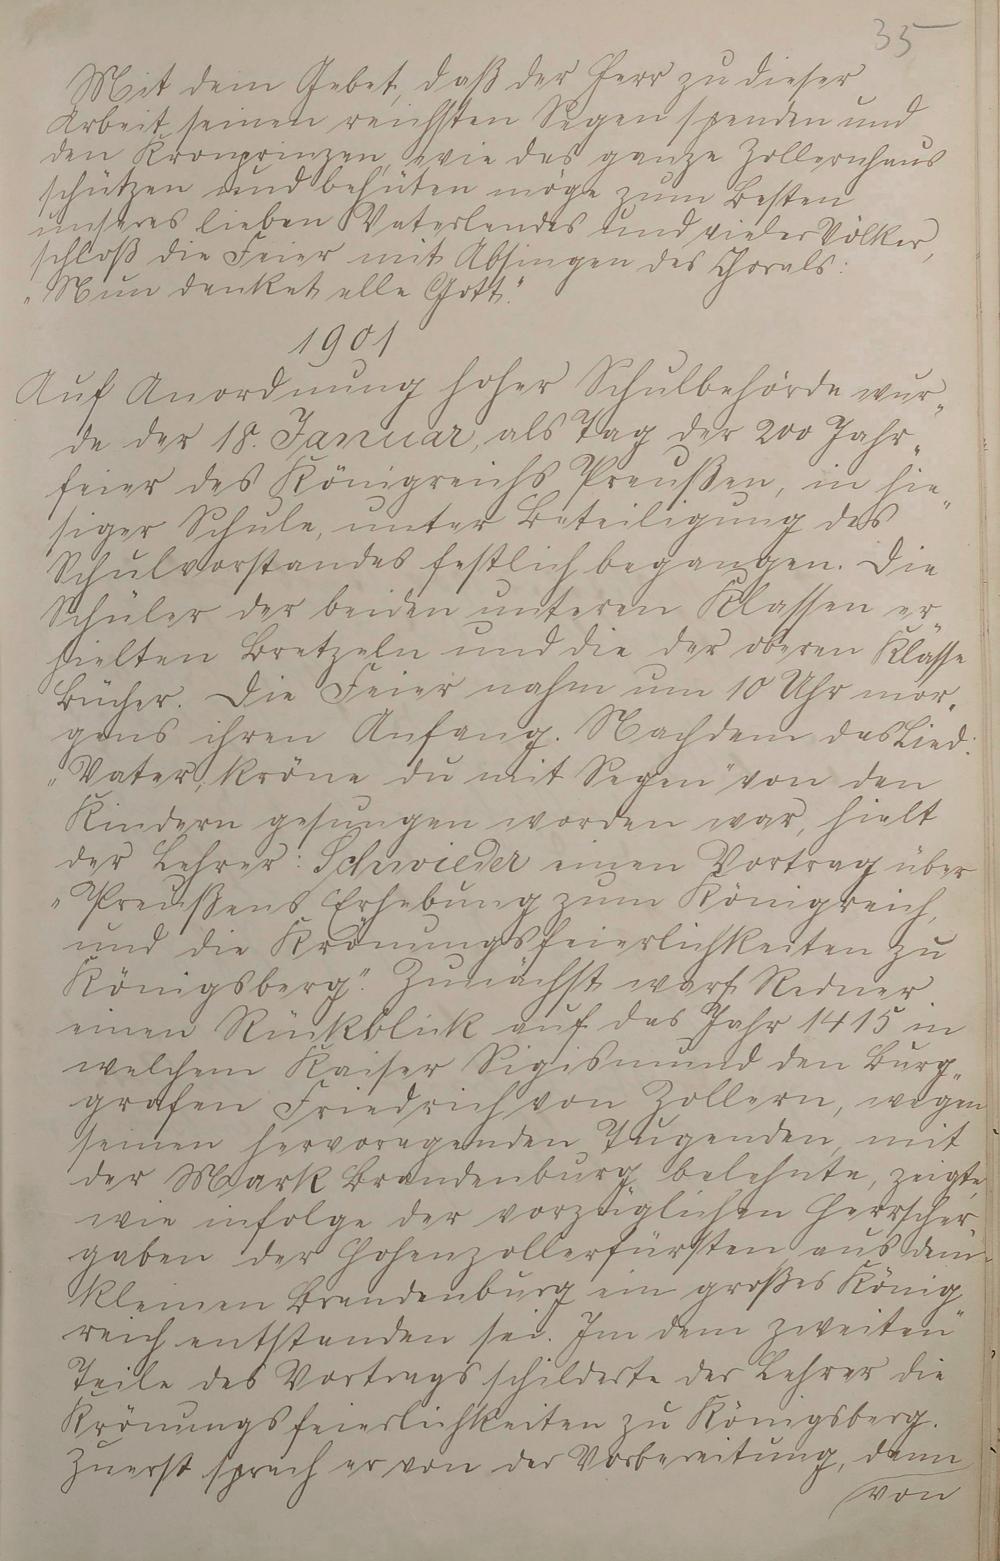 35
Mit dem Gebet, daß der Herr zu dieser
Arbeit seinen reichsten Segen spenden und
den Kronprinzen, wie das ganze Zollernhaus
schützen und behüten möge zum Besten
unseres lieben Vaterlandes und vieler Völker,
schloß die Feier mit Absingen des Chorals:
„Nun danket alle Gott."
1901
Auf Anordnung hoher Schulbehörde wur„
de der 18. Januar, als Tag der 200 Jahr„
feier des Königreichs Preußen, in hie„
siger Schule, unter Beteiligung des
Schulvorstandes festlich begangen. Die
Schüler der beiden unteren Klassen er„
hielten Bretzeln und die der oberen Klasse
Bücher. Die Feier nahm um 10 Uhr mor„
gens ihren Anfang. Nachdem das Lied:
„Vater, kröne du mit Segen" von den
Kindern gesungen worden war, hielt
der Lehrer: Schwieder einen Vortrag über
„Preußens Erhebung zum Königreich,
und die Krönungsfeierlichkeiten zu
Königsberg". Zunächst warf Redner
einen Rückblick auf das Jahr 1415 in
welchem Kaiser Sigismund den Burg„
grafen Friedrich von Zollern, wegen
seinen hervoragenden Tugenden, mit
der Mark Brandenburg belehnte, zeigte,
wie infolge der vorzüglichen Herrscher„
gaben der Hohenzollerfürsten aus dem
kleinen Brandenburg ein großes König„
reich entstanden sei. Im dem zweiten
Teile des Vortrags schilderte der Lehrer die
Krönungsfeierlichkeiten zu Königsberg.
Zuerst sprach er von der Vorbereitung, dann
von